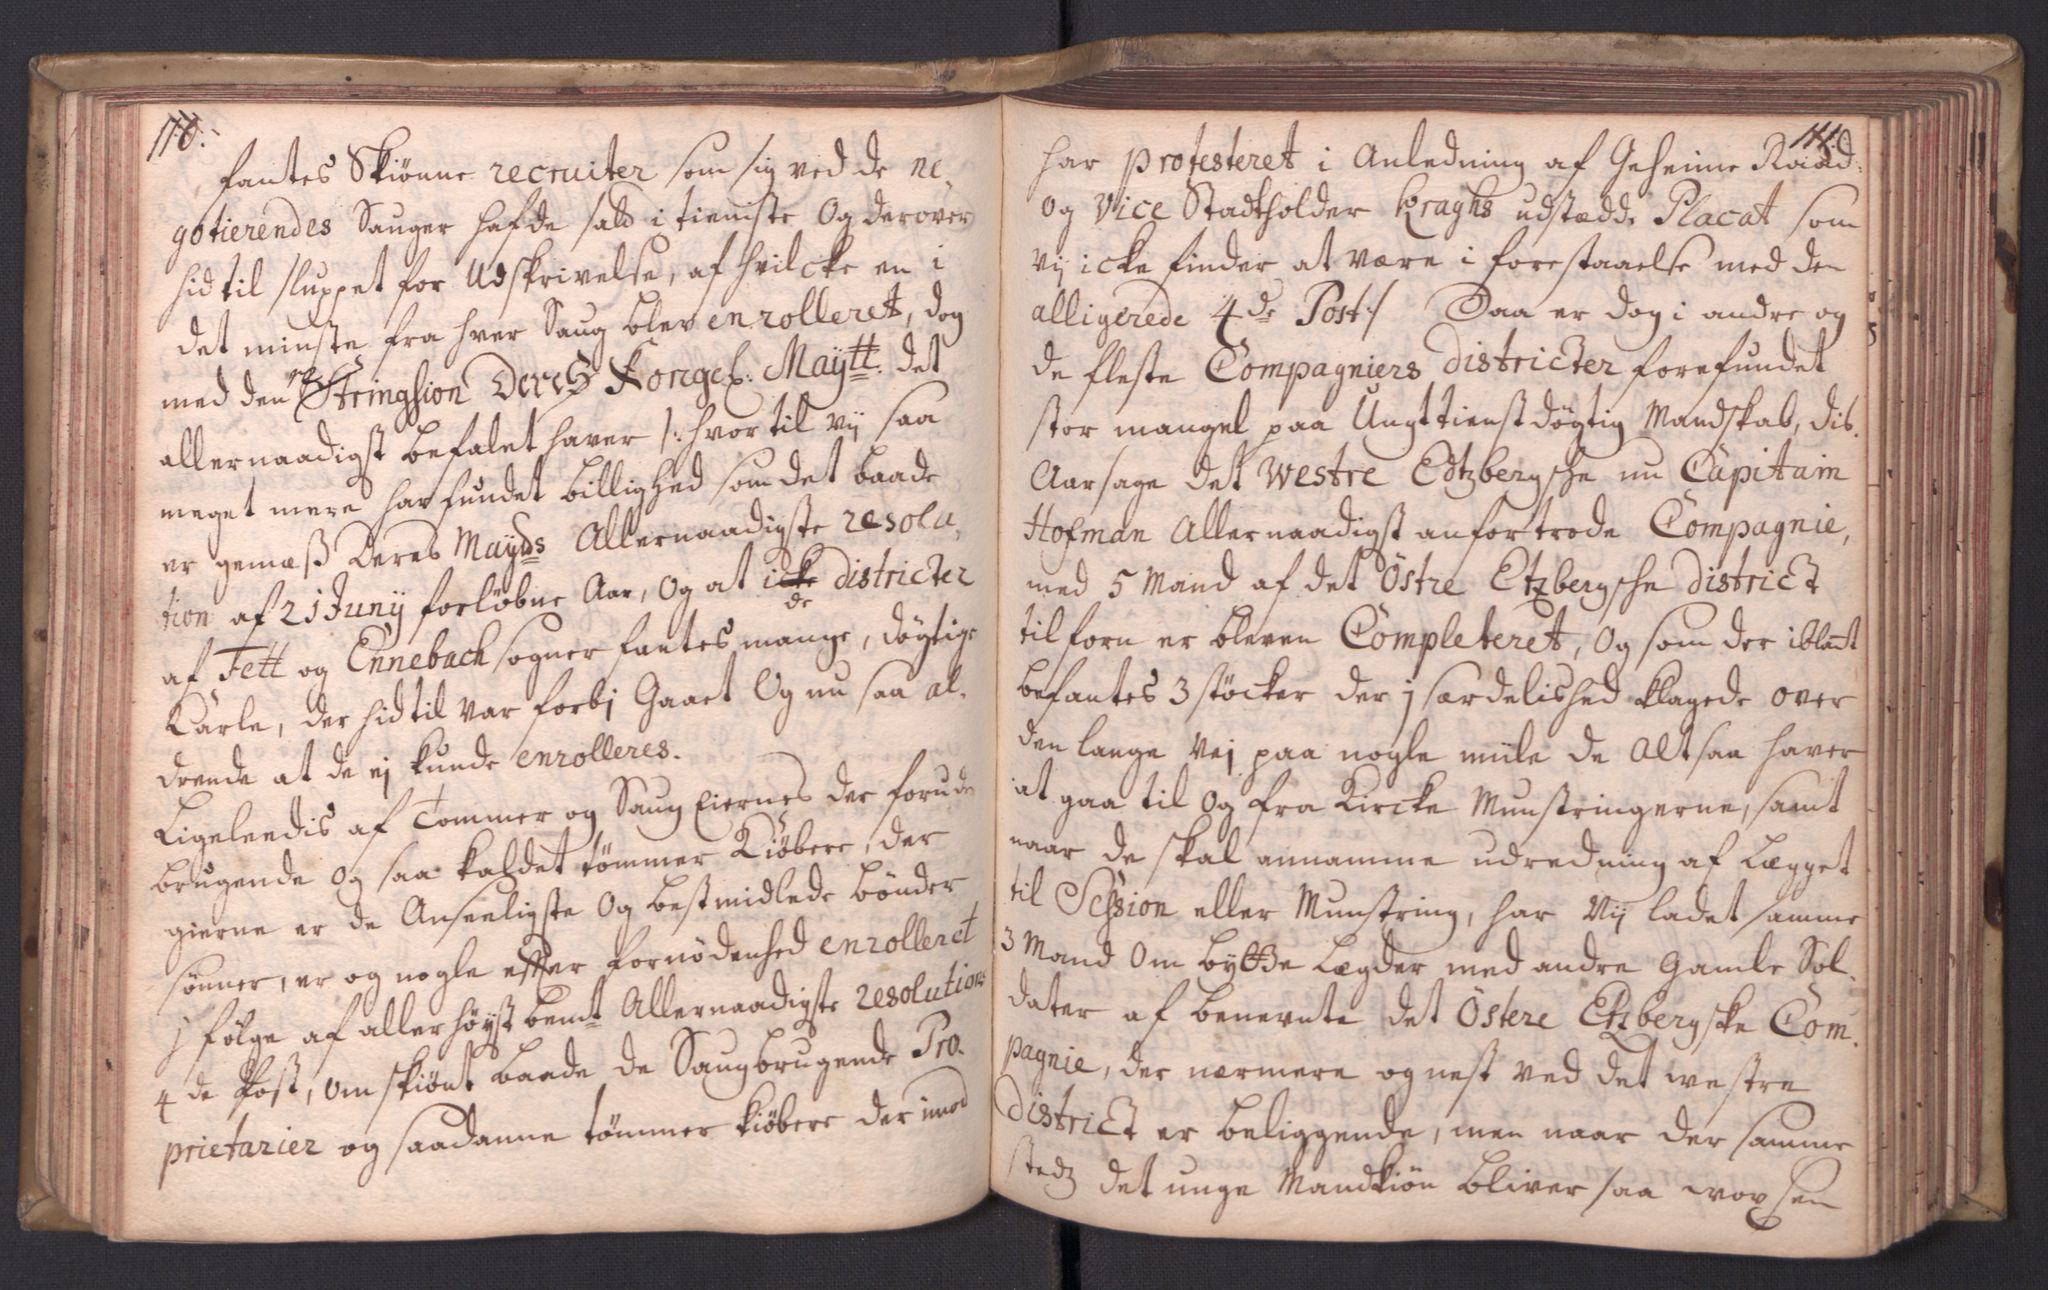 110.
fantes Skiönne recruiter som sig ved de ne,
gotierendes Sauger hafde sadt i tieniste Og derover
hidtil sluppet for Udskrivelse, af hvilcke en i
det minste fra hver Saug blev enrolleret, dog
med den restringsion Deres Kongel: Maÿtt. det
allernaadigst befalet haver /: hvortil vij saa
meget mere har fundet billighed som det baade
er gemæß Deres Maÿds Allernaadigste resolu,
tion af 21 Junÿ forløbne Aar, Og at icke de districter
af Fett og Ennebach sogner fantes mange, döÿtige
Karle, der hidtil var forbj Gaaet Og nu saa al,
drende at de ej kunde enrolleres.
Ligeleedis af Tommer og Saug Eiernes der forude
brugende Og saa kaldet tömmer Kiöbere, der
gierne er de Anseeligste Og best midlede bönder
sönner, er og nogle efter fornödenhed enrolleret
j fölge af allerhöÿst bemt Allernaadigste resolutions
4 de Post, om skiönt baade de Saugbrugende Pro,
prietarier og saadanne tömmer kiöbere der imod
111.
har protesteret i Anledning af Geheime Raad
Og Vice Stadtholder Kraghs udstædde Placat som
vij icke finder at være i forestaaelse med den
alligerede 4de Post :/ Saa er dog i andre og
de fleste Compagniers districter forefundet
stor mangel paa Ungt tienstdögtig Mandskab, dis,
Aarsage det Westre Edtzbergsche nu Capitain
Hofman Allernaadigst anfortrode Compagnie,
med 5 Mand af det Östre Etzbergsche district
tilforn er bleven Completeret, Og som der iblant
befantes 3 stöcker der j særdelished klagede over
den lange Vej paa nogle miile de altsaa haver
at gaa til Og fra Kircke Munstringerne, samt
naar de skal annamme udredning af Lægget
til Session eller Munstring, har Vij ladet samme
3 Mand Om bÿtte Lægder med andre Gamle Sol,
dater af benevnte det Östere Etzbergske Com,
pagnie, der nærmere og nest ved det westre
district er beliggende, men naar der samme
stedz det unge Mandkiön bliver saa voxsen